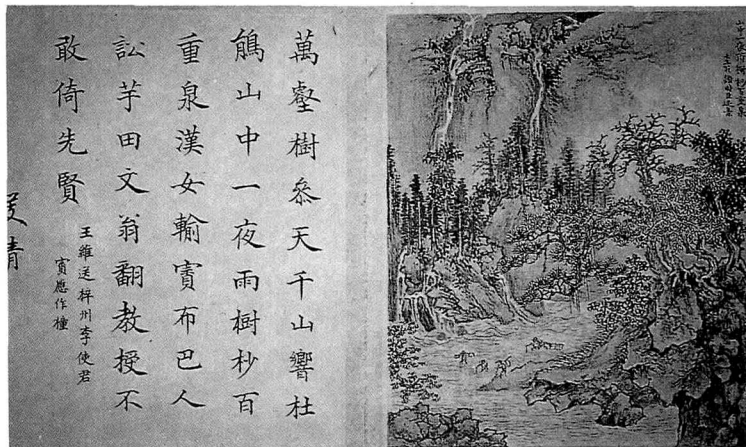 山中一夜雨樹杪百重泉
萬壑樹叅天千山響杜
鵑山中一夜雨樹杪百
重泉漢女輸賨布巴人
訟芋田文翁翻教授不
敢倚先賢
王維送梓州李使君
賨應作橦